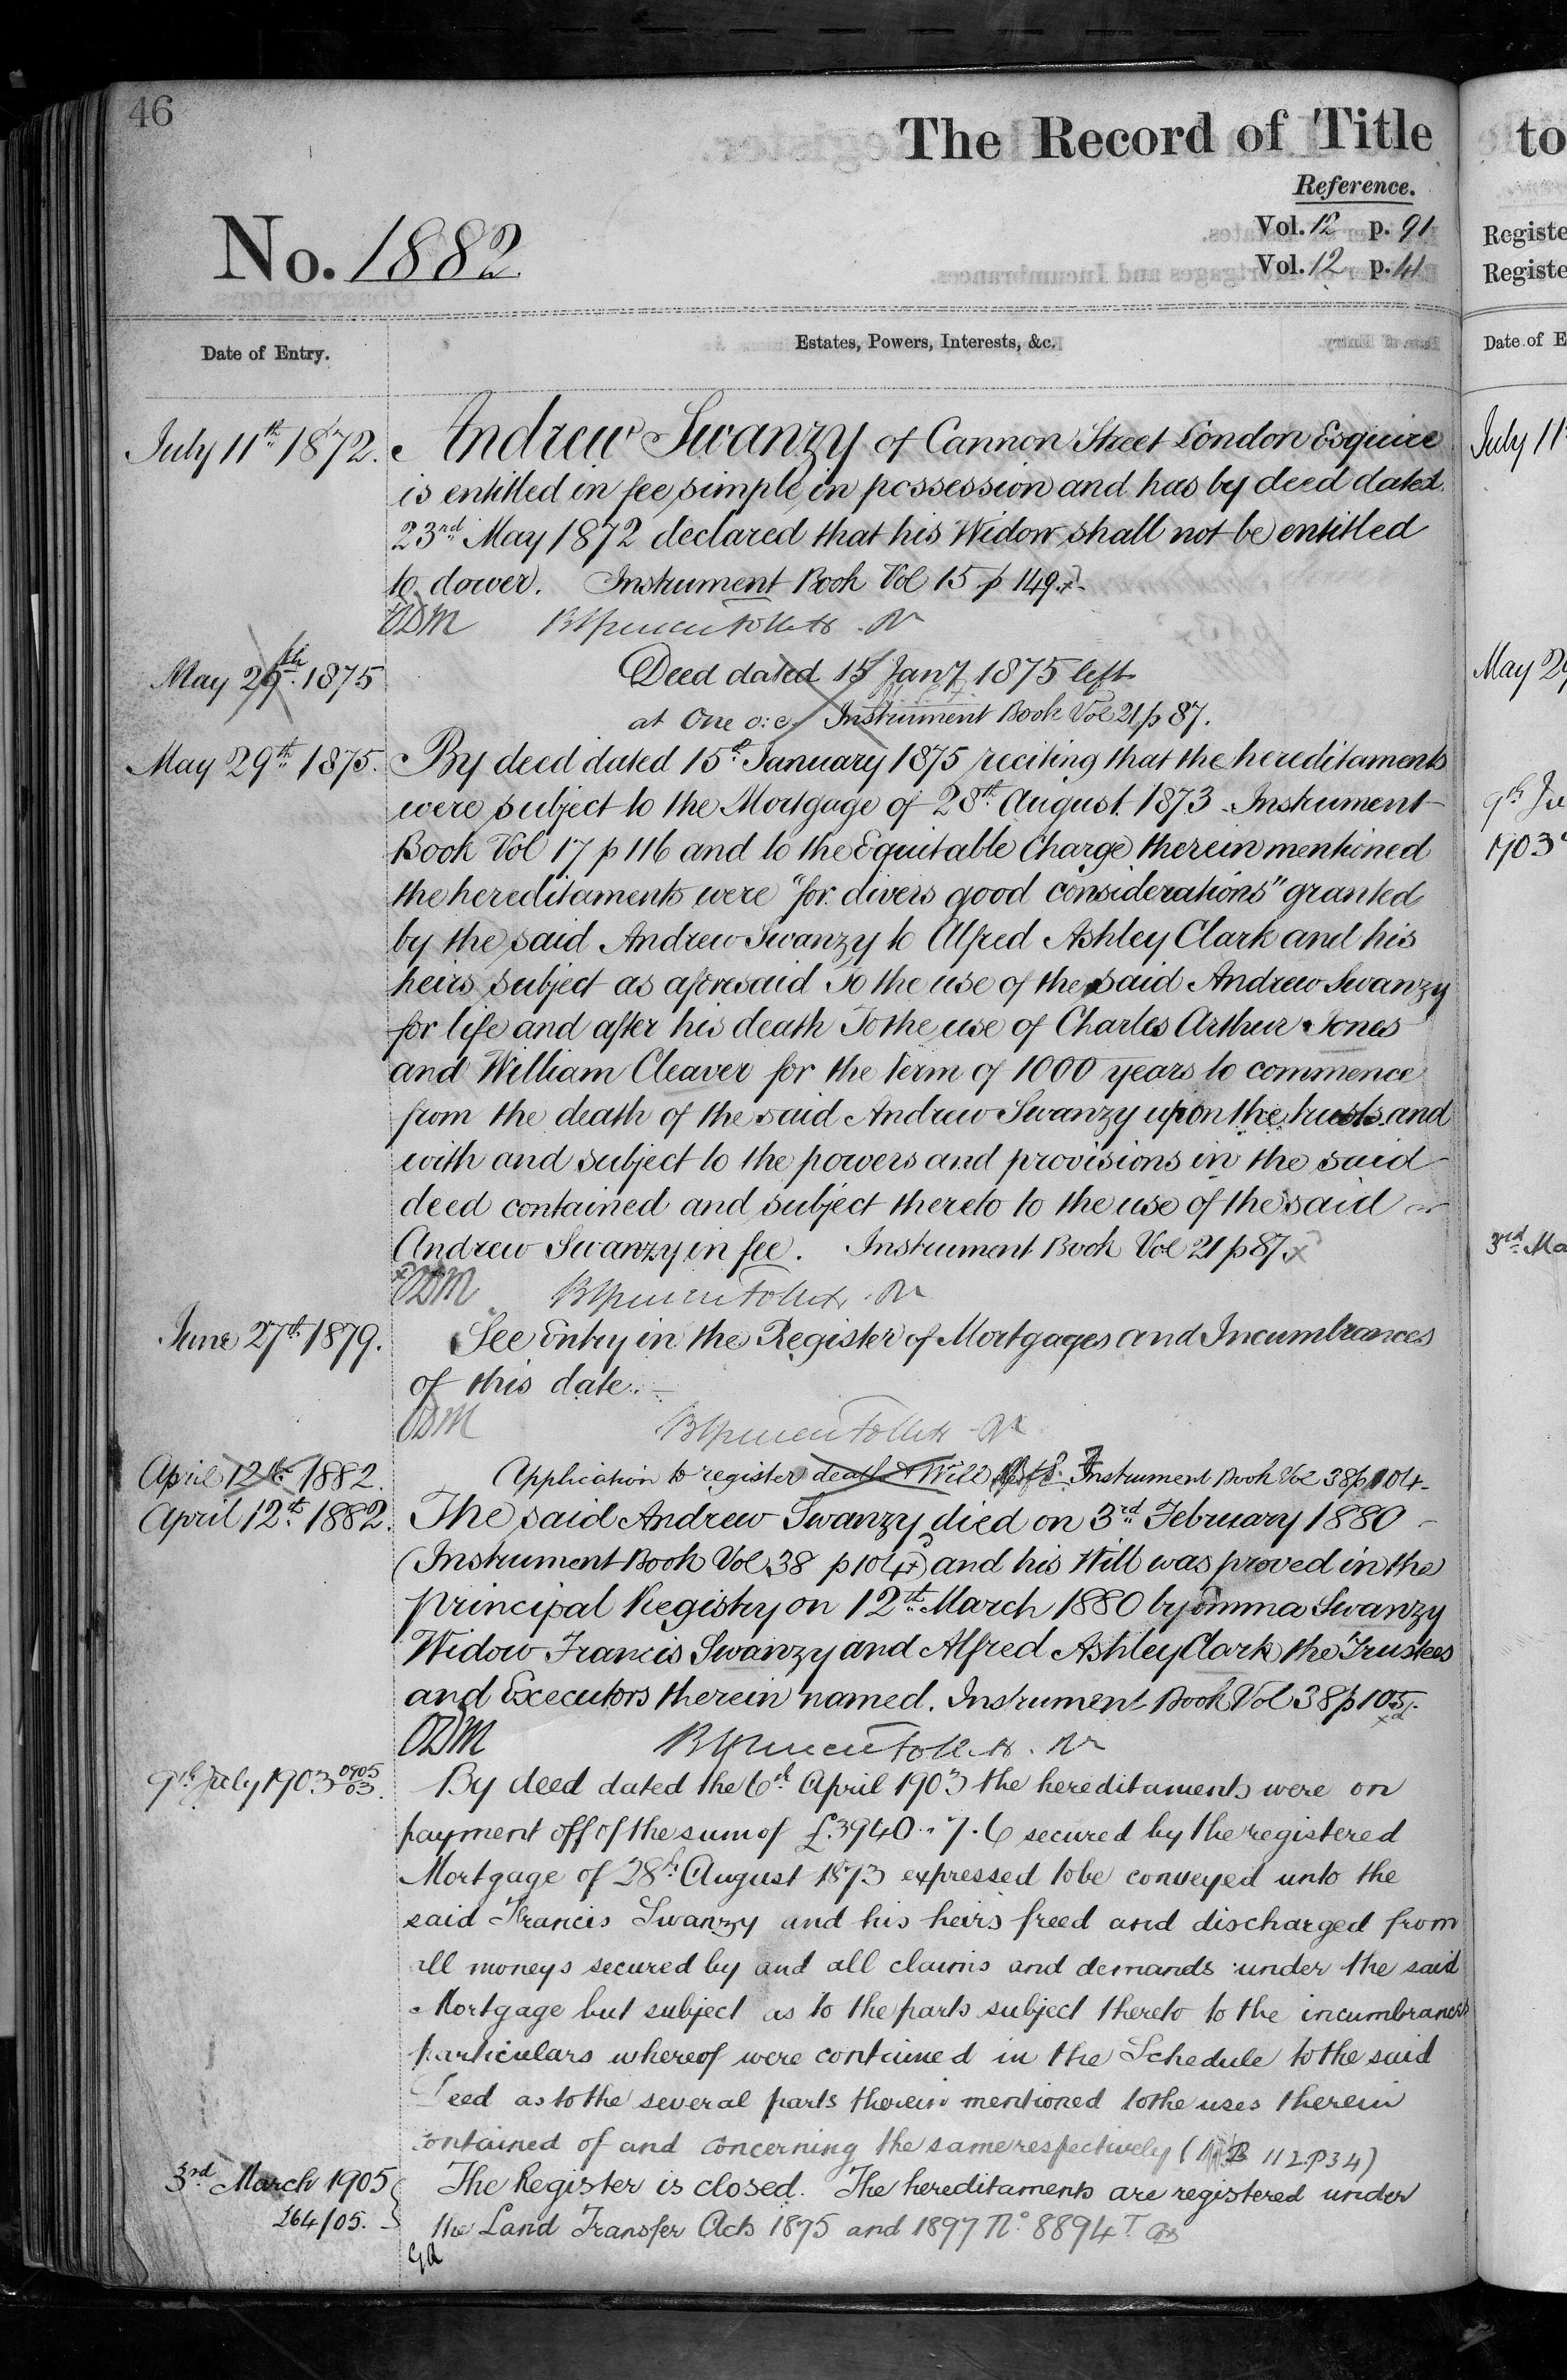 46
The Record of Title
Reference.
No. 1882
Vol. 12 p. 91
Vol. 12 p. 41
Date of Entry.
Estates, Powers, Interests, &c.
July 11th 1872. Andrew Swanzy of Cannon Street London Esquire
is entitled in fee simple in possession and has by deed dated
23rd May 1872 declared that his Widow shall not be entitled
to dower. Instrument Book Vol 15 p 149.
ODM
May 29th 1875 Deed dated 15 Jany 1875 left
at One o:c. Instrument Book Vol 21 p 87.
May 29th 1875. By deed dated 15th January 1875 reciting that the hereditaments
were subject to the Mortgage of 28th August 1873 Instrument
Book Vol 17 p 116 and to the Equitable Charge therein mentioned
the hereditaments were "for divers good considerations" granted
by the said Andrew Swanzy to Alfred Ashley Clark and his
heirs subject as aforesaid To the use of the said Andrew Swanzy
for life and after his death To the use of Charles Arthur Jones
and William Cleaver for the term of 1000 years to commence
from the death of the said Andrew Swanzy upon the trusts and
with and subject to the powers and provisions in the said
deed contained and subject thereto to the use of the said
Andrew Swanzy in fee. Instrument Book Vol 21 p 87
ODM
June 27th 1879. See Entry in the Register of Mortgages and Incumbrances
of this date.
ODM
April 12th 1882. Application to register death & Will Instrument Book Vol 38 p 104
April 12th 1882. The said Andrew Swanzy died on 3rd February 1880
(Instrument Book Vol 38 p 104) and his Will was proved in the
principal Registry on 12th March 1880 by Emma Swanzy
Widow Francis Swanzy and Alfred Ashley Clark the Trustees
and Executors therein named. Instrument Book Vol 38 p 105.
ODM
9th July 1903 0905/03. By deed dated the 6th April 1903 the hereditaments were on
payment off of the sum of £3940.. 7. 6 secured by the registered
Mortgage of 28th August 1873 expressed to be conveyed unto the
said Francis Swanzy and his heirs freed and discharged from
all moneys secured by and all claims and demands under the said
Mortgage but subject as to the parts subject thereto to the incumbrances
particulars whereof were contained in the Schedule to the said
Deed as to the several parts therein mentioned to the uses therein
contained of and concerning the same respectively ( B 112 P 34)
3rd March 1905 The Register is closed. The hereditaments are registered under
264/05. the Land Transfer Acts 1875 and 1897 No 8894
GA
to
Registe
Registe
Date of E
July 11
May 29
9th Ju
1903
3rd Ma